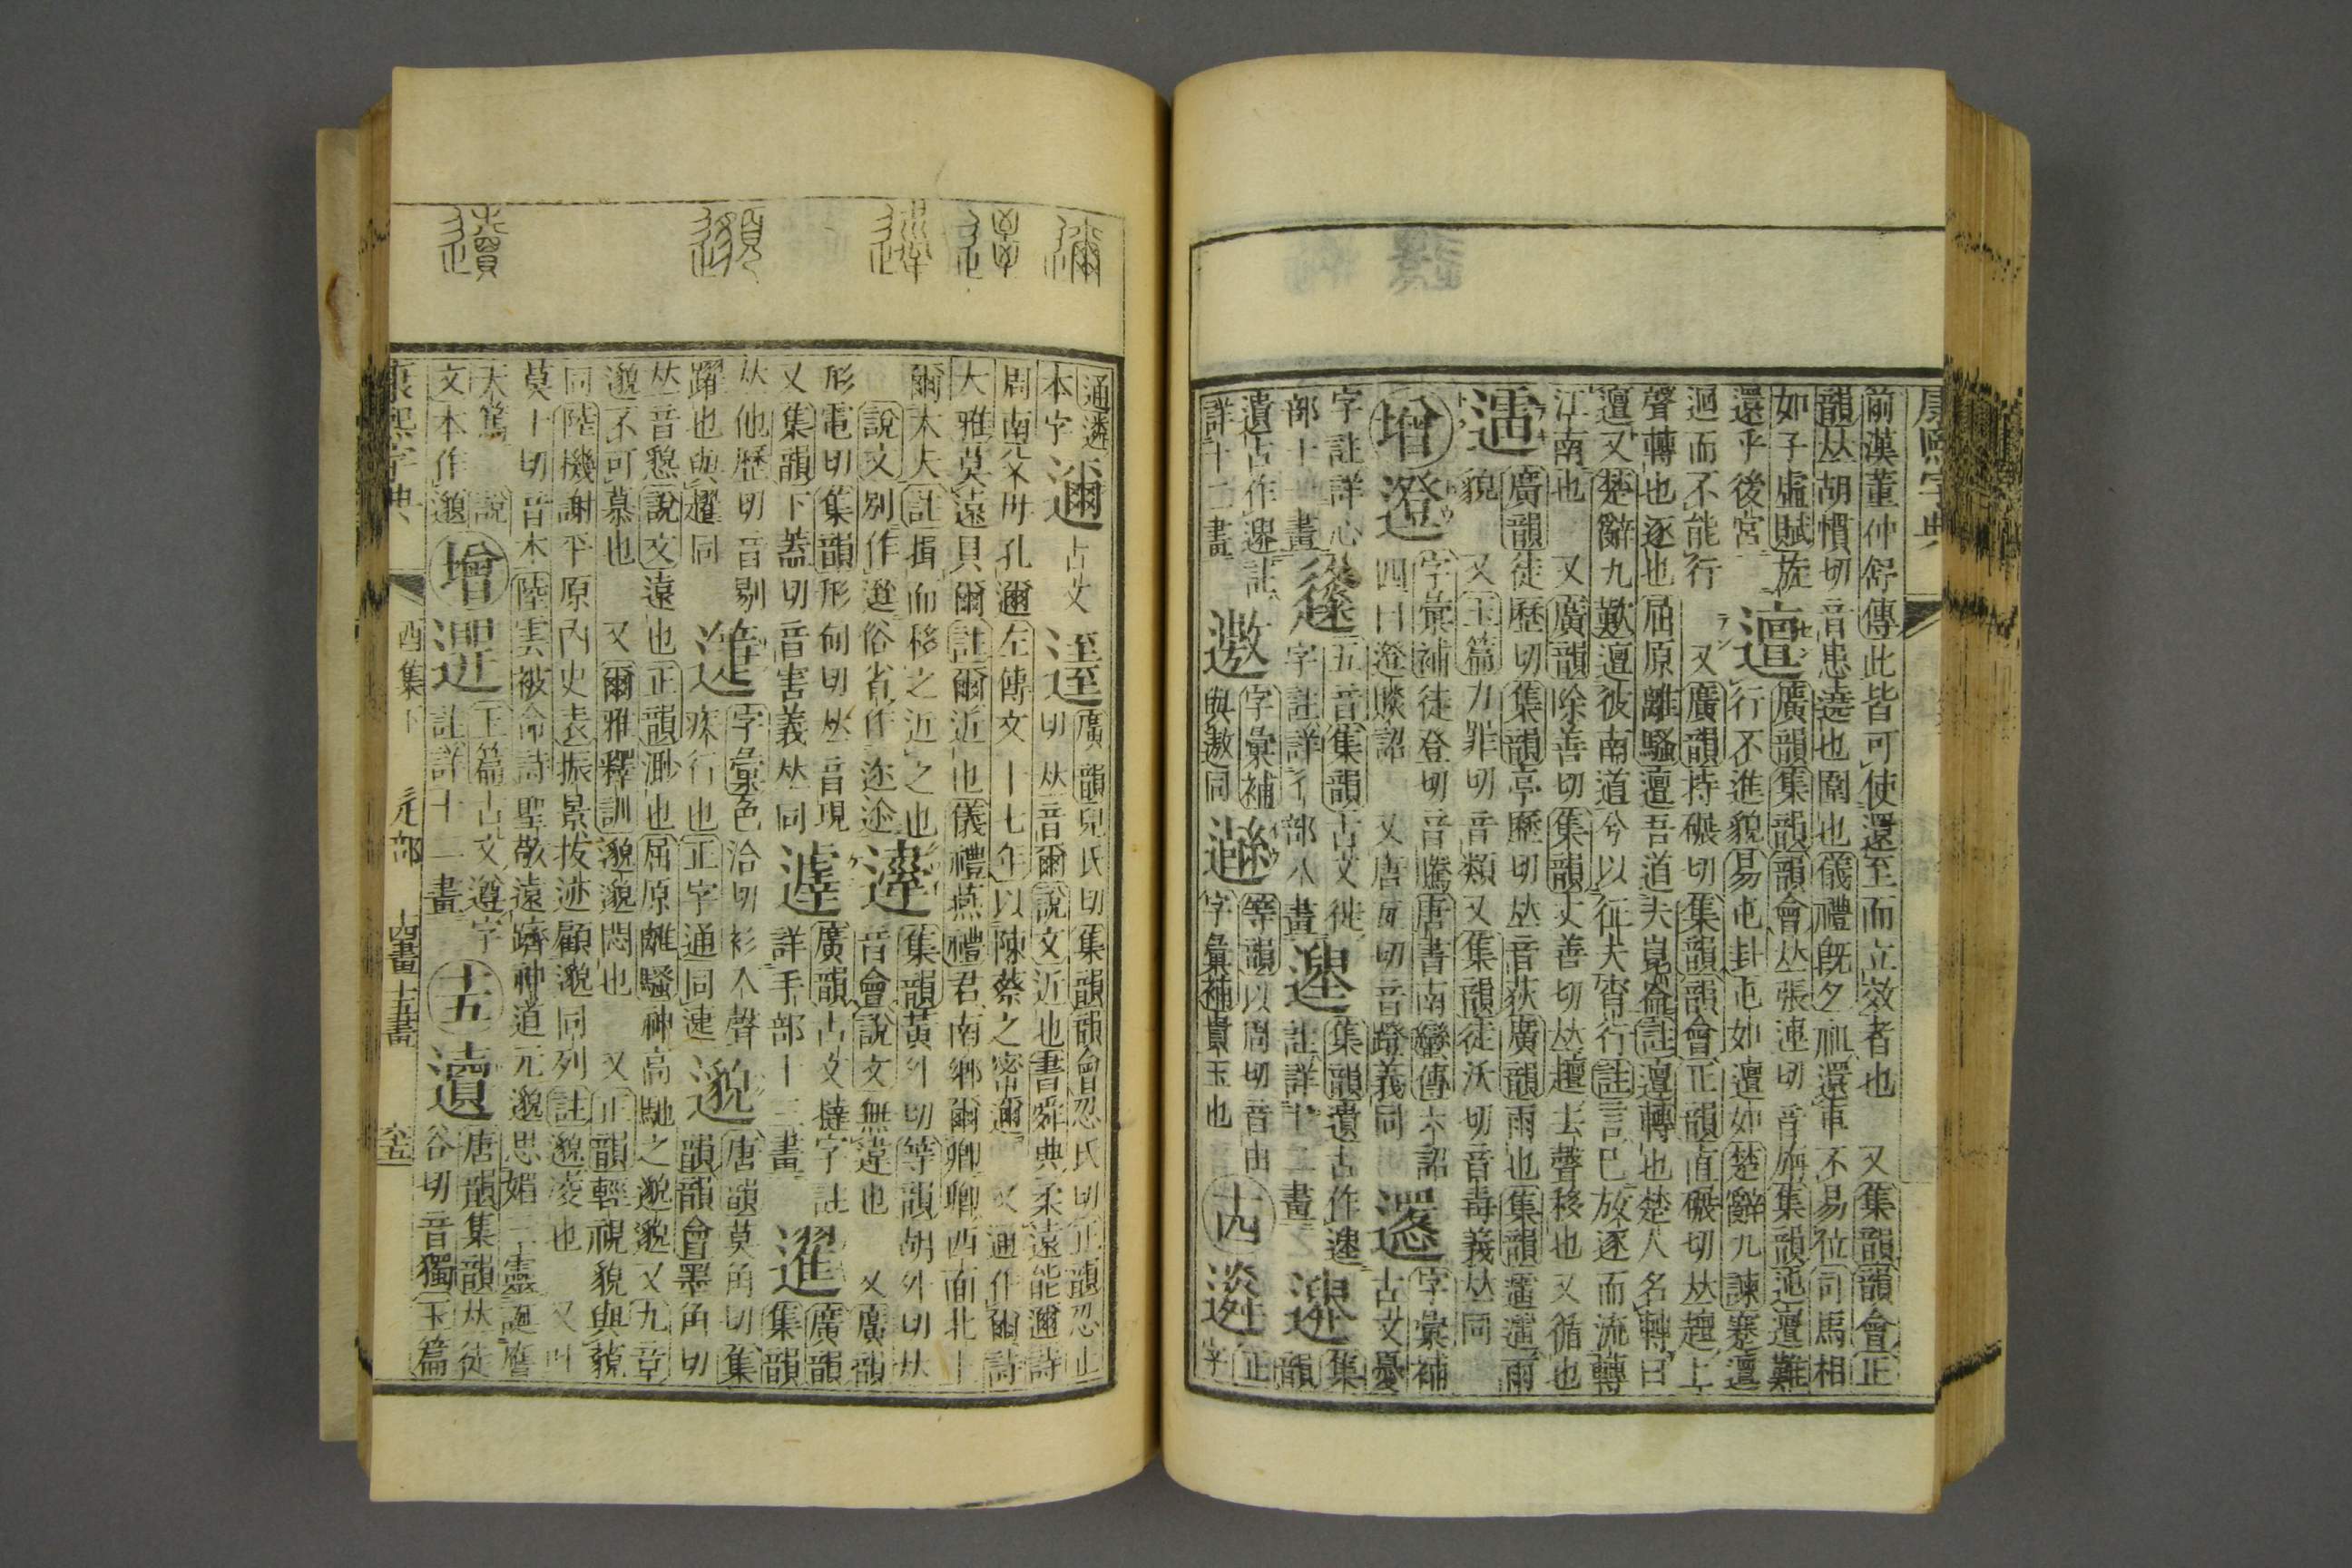 康熙字典
前漢董仲舒傳此皆可使還至而立效者也 又集韻韻會正
韻𠀤胡慣切音患遶也圍也儀禮旣夕祖還車不易位司馬相
如子虛賦旋
還乎後宮
邅
廣韻集韻韻會𠀤張連切音旃集韻迍邅難
行不進貌易屯卦屯如邅如楚辭九諫蹇邅
迴而不能行 又廣韻持碾切集韻韻會正韻直碾切𠀤趁上
聲轉也逐也屈原離騷邅吾道夫崑崙註邅轉也楚人名轉曰
邅又楚辭九歎邅彼南道兮以征夫宵行註言已放逐而流轉
江南也 又廣韻除善切集韻丈善切𠀤趁去聲移也又循也
廣韻徒歷切集韻亭歷切𠀤音荻廣韻雨也集韻 雨
貌 又玉篇力罪切音類又集韻徒沃切音毒義𠀤同
增
邆
字彙補徒登切音騰唐書南蠻傳六詔
四曰邆賧詔 又唐亙切音蹬義同
字彙補
古文憂
字註詳心
部十一畫
五音集韻古文後
字註詳彳部六畫
集韻遺古作
註詳十二畫
集韻
遺古作 註
詳十二畫
字彙補
與遨同
等韻以周切音由
字彙補 玉也
十四
正字
通遴
本字
邇
古文
廣韻兒氏切集韻韻會忍氏切正韻忍止
切𠀤音爾說文近也書舜典柔遠能邇詩
周南父母孔邇左傳文十七年以陳蔡之密邇 又通作爾詩
大雅莫遠具爾註爾近也儀禮燕禮君南鄉爾卿卿西面北上
爾大夫註揖而移之近之也
集韻黃外切等韻胡外切𠀤
音會說文無違也 又廣韻
說文別作 俗省作迩
形電切集韻形甸切𠀤音現
又集韻下蓋切音害義𠀤同
廣韻古文撻字註
詳手部十三畫
廣韻
集韻
𠀤他歷切音剔
躍也與趯同
字彙色洽切衫入聲
疾行也正字通同 
邈
唐韻莫角切集
韻韻會墨角切
𠀤音懇說文遠也正韻渺也屈原離騷神高馳之邈邈又九章
邈不可慕也 又爾雅釋訓邈邈悶也 又正韻輕視貌與藐
同陸機謝平原內史表振景拔迹顧邈同列註邈凌也 又叶
莫卜切音木陸雲被命詩聖敬遠躋神道元邈思媚三靈誕膺
天篤 說
文本作
增
玉篇古文遵字
註詳十二畫
十五
唐韻集韻𠀤徒
谷切音獨玉篇
康熙字典
酉集下
辵部
十四畫十五畫
六十五